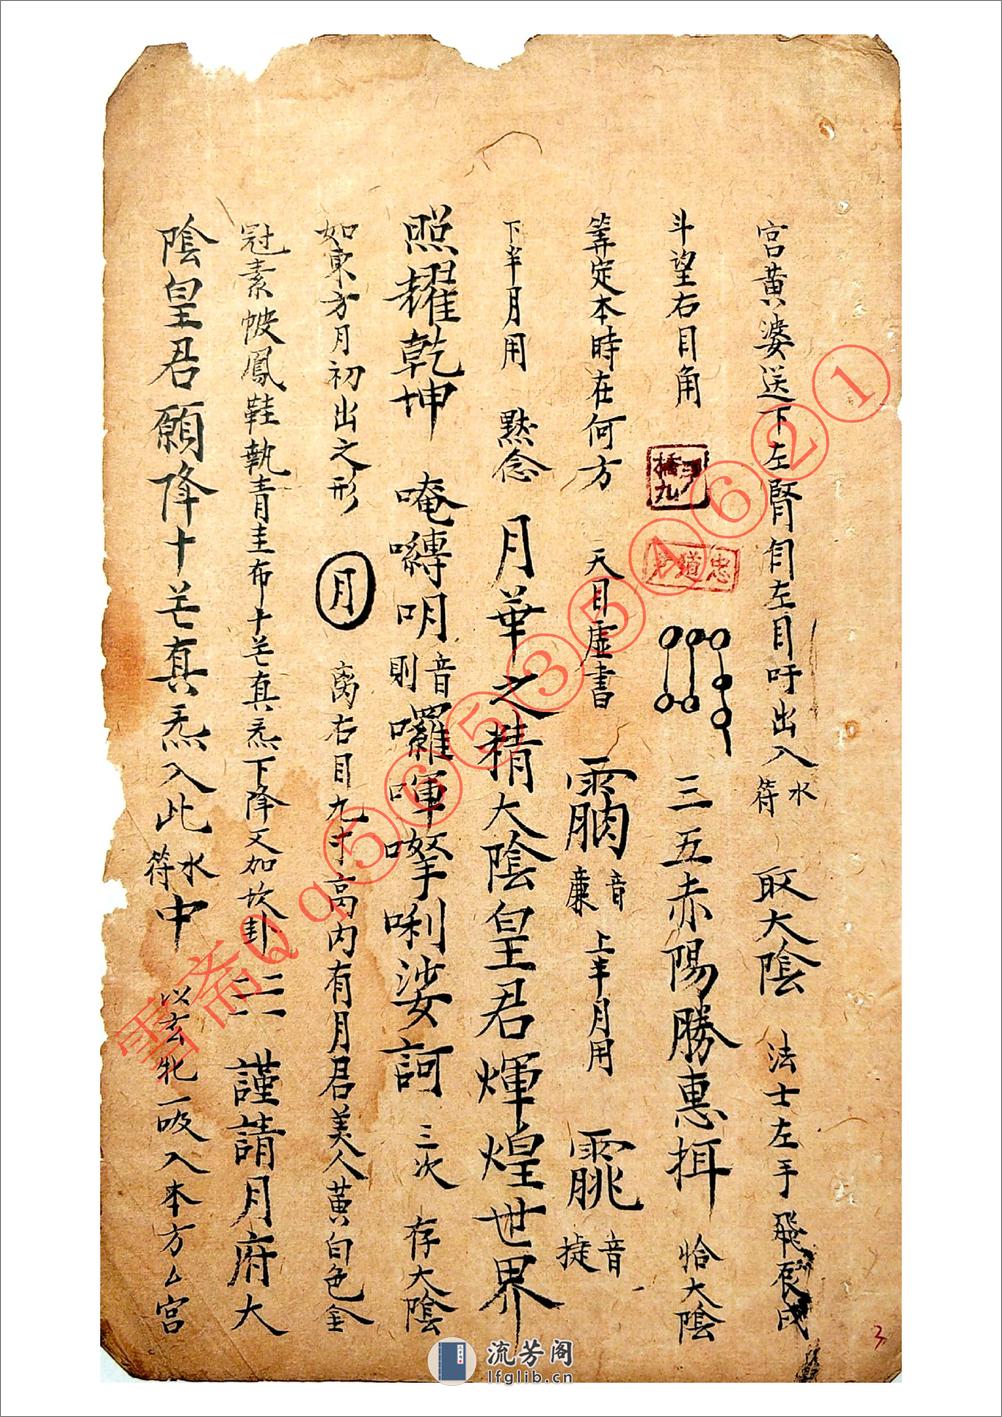 宮黃婆送下左腎自左目吁出入水符 取大陰 法士左手飛辰戌
斗望右目角 三五赤陽勝惠揖 恰大陰
筭定本時在何方 天目虛書 音廉 上半月用 音捷
下半月用 默念 月華之精大陰皇君煇煌世界
照耀乾坤 唵嚩明音則囉喗拏唎娑訶 三次 存大陰
如東方月初出之形 月 离右目九寸高內有月君美人黃白色金
冠素帔鳳鞋執青圭布十芒真炁下降又加坎卦☵ 謹請月府大
陰皇君願降十芒真炁入此水符中 以玄牝一吸入本方厶宮
忠道
雲斋Qq565354621
3
流芳阁
lfglib.cn